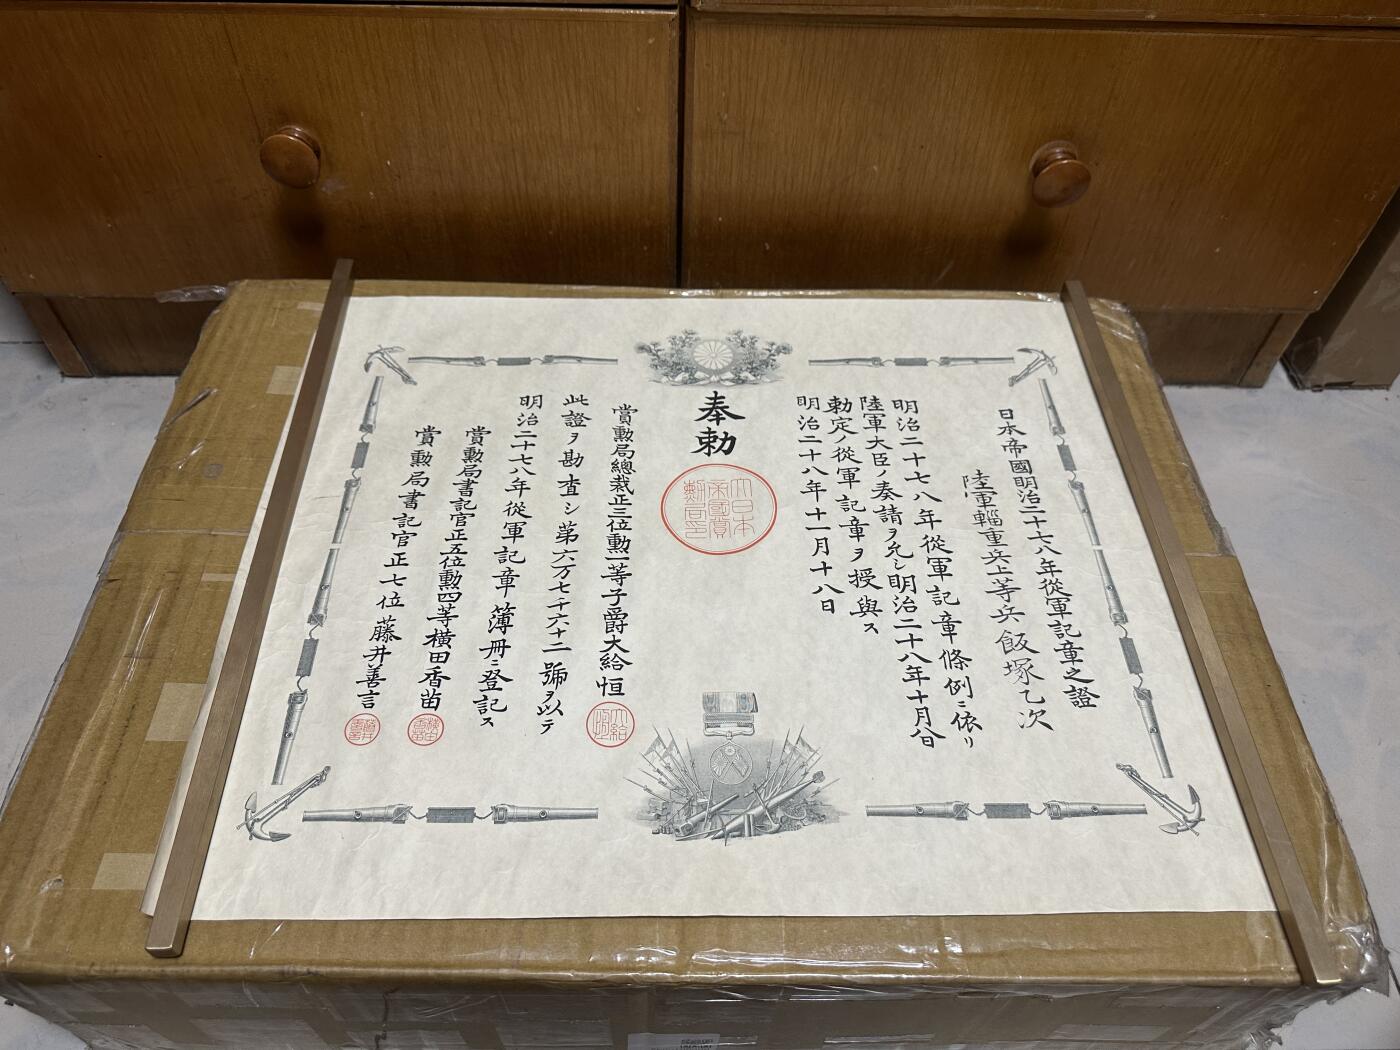 日本帝國明治二十七八年從軍記章之證
陸軍輜重兵上等兵飯塚乙次
明治二十七八年從軍記章條例ニ依リ
陸軍大臣ノ奏請ヲ允シ明治二十八年十月八日
勅定ノ從軍記章ヲ授與ス
明治二十八年十一月十八日
奉勅
大日本
帝國賞
勳局印
賞勳局總裁正三位勲一等子爵大給恒
此證ヲ勘査シ第六万七千六十二號ヲ以テ
明治二十七八年從軍記章簿冊ニ登記ス
賞勳局書記官正五位勲四等横田香苗
賞勳局書記官正七位藤井善言